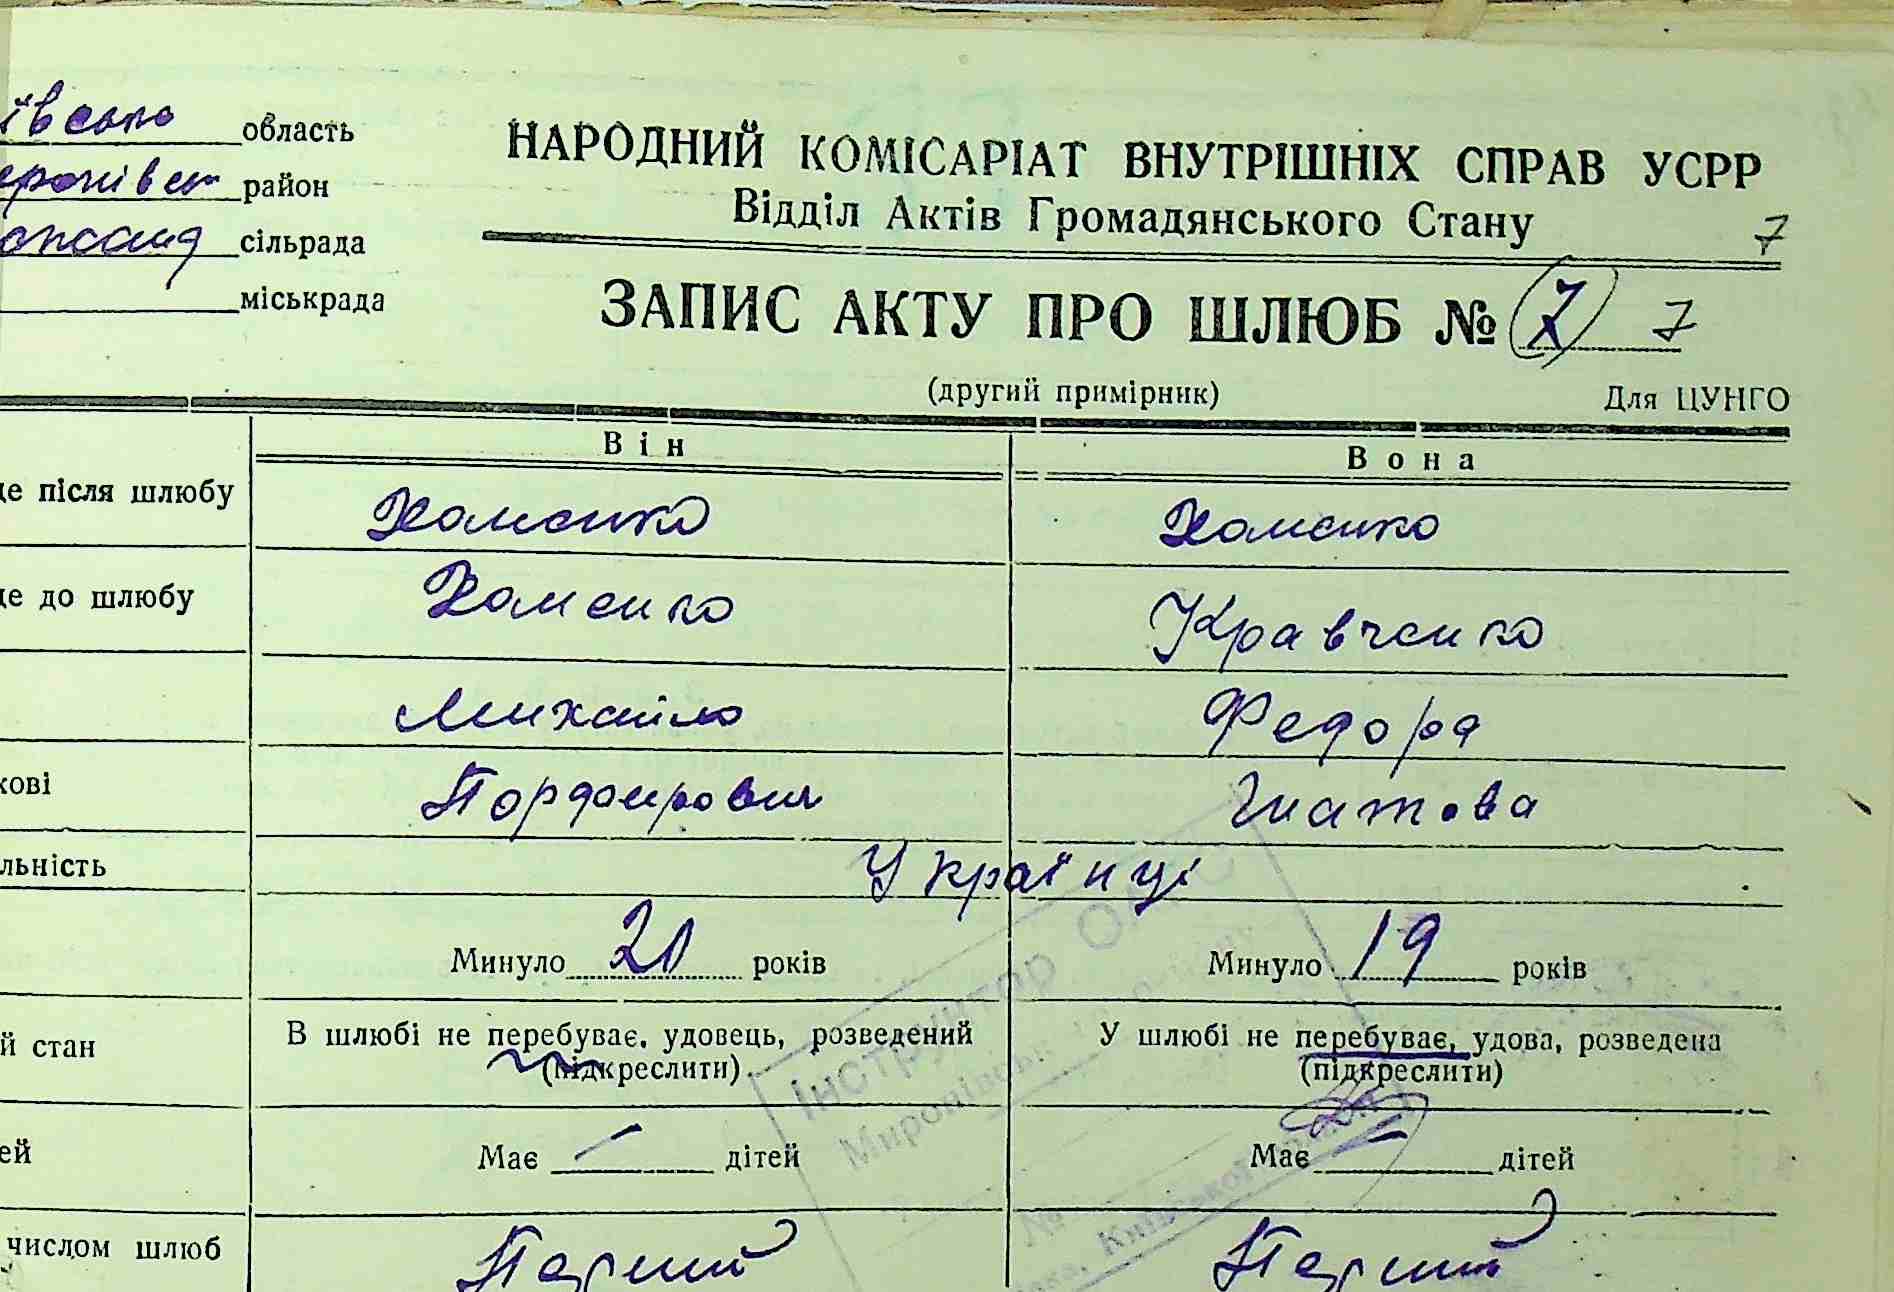 ївська область
район
сільрада
міськрада
НАРОДНИЙ КОМІСАРІАТ ВНУТРІШНІХ СПРАВ УСРР
Відділ Актів Громадянського Стану
7
ЗАПИС АКТУ ПРО ШЛЮБ № 7 7
(другий примірник)
Для ЦУНГО
Він Вона
це після шлюбу Хоменко Хоменко
це до шлюбу Хоменко Кравченко
Михайло Федора
кові Порфирович Гнатова
льність Українці
Минуло 20 років Минуло 19 років
й стан В шлюбі не перебуває, удовець, розведений У шлюбі не перебуває, удова, розведена
(підкреслити) (підкреслити)
ей Має — дітей Має — дітей
числом шлюб Перший Перший
Інструктор ОАГС
Миропівськ
№
Київської